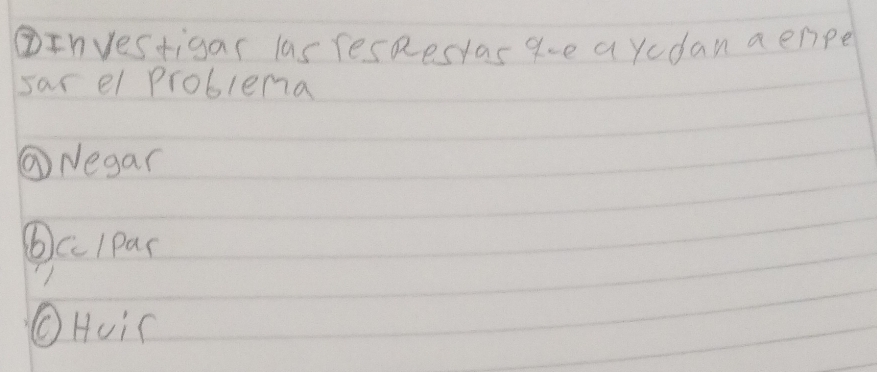 ① Investigar las respuestas que ayudan a empe
sar el problema
ⓐ Negar
ⓑ culpar
ⓒ Huir